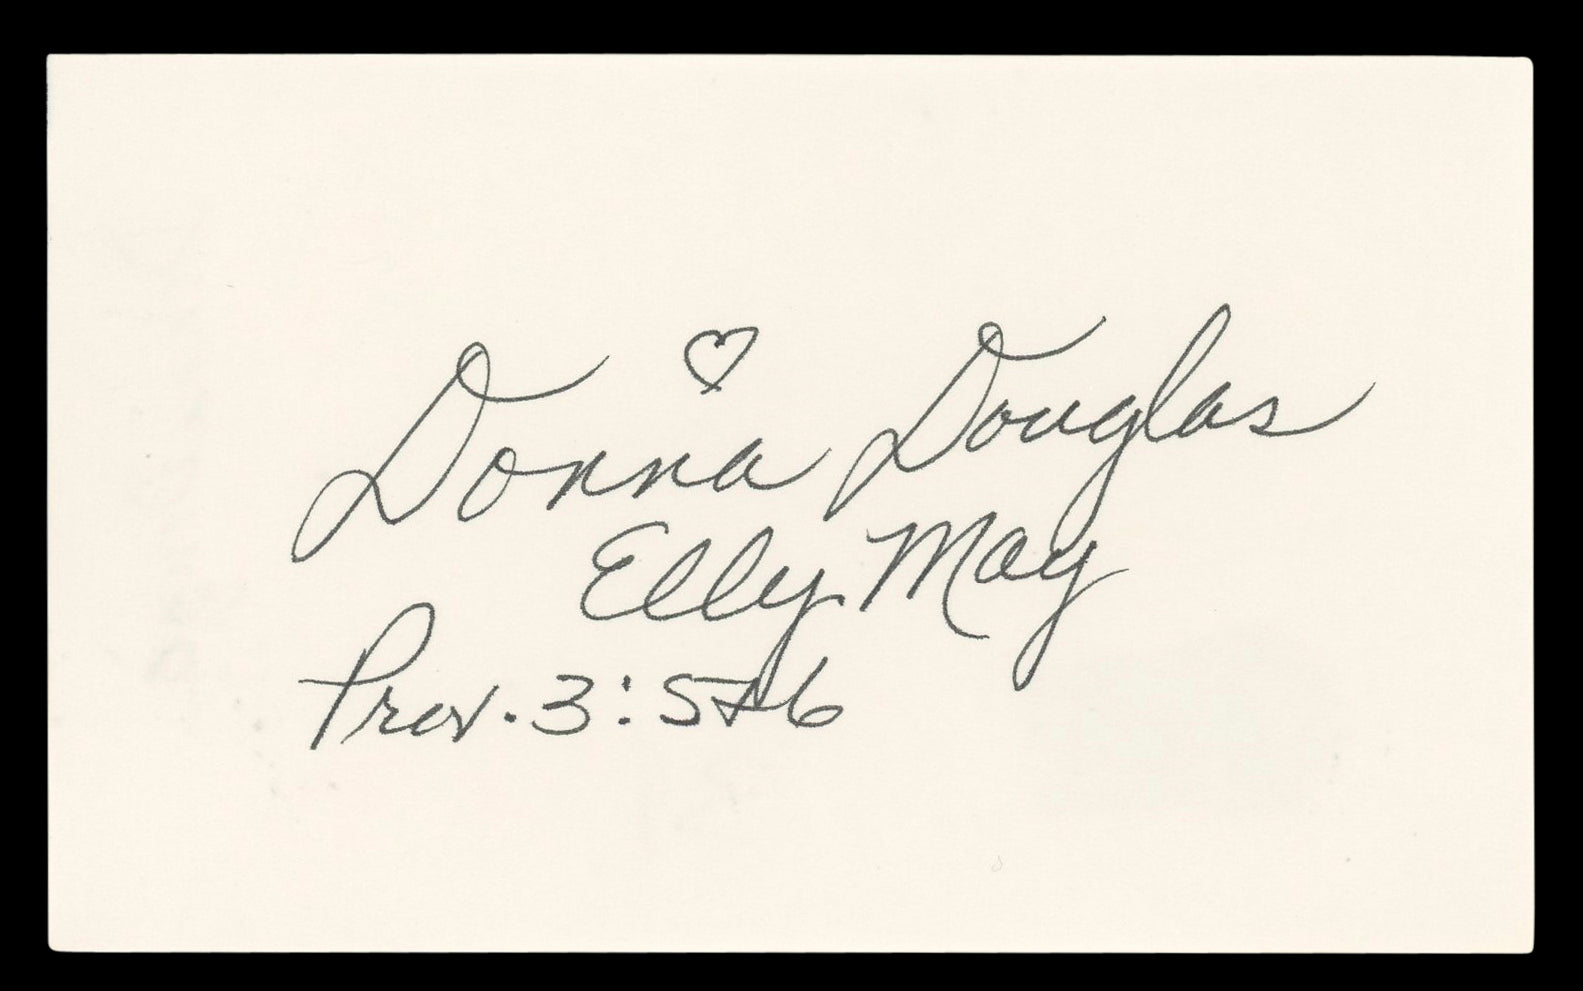 Donna Douglas
Elly May
Prov. 3:5&6